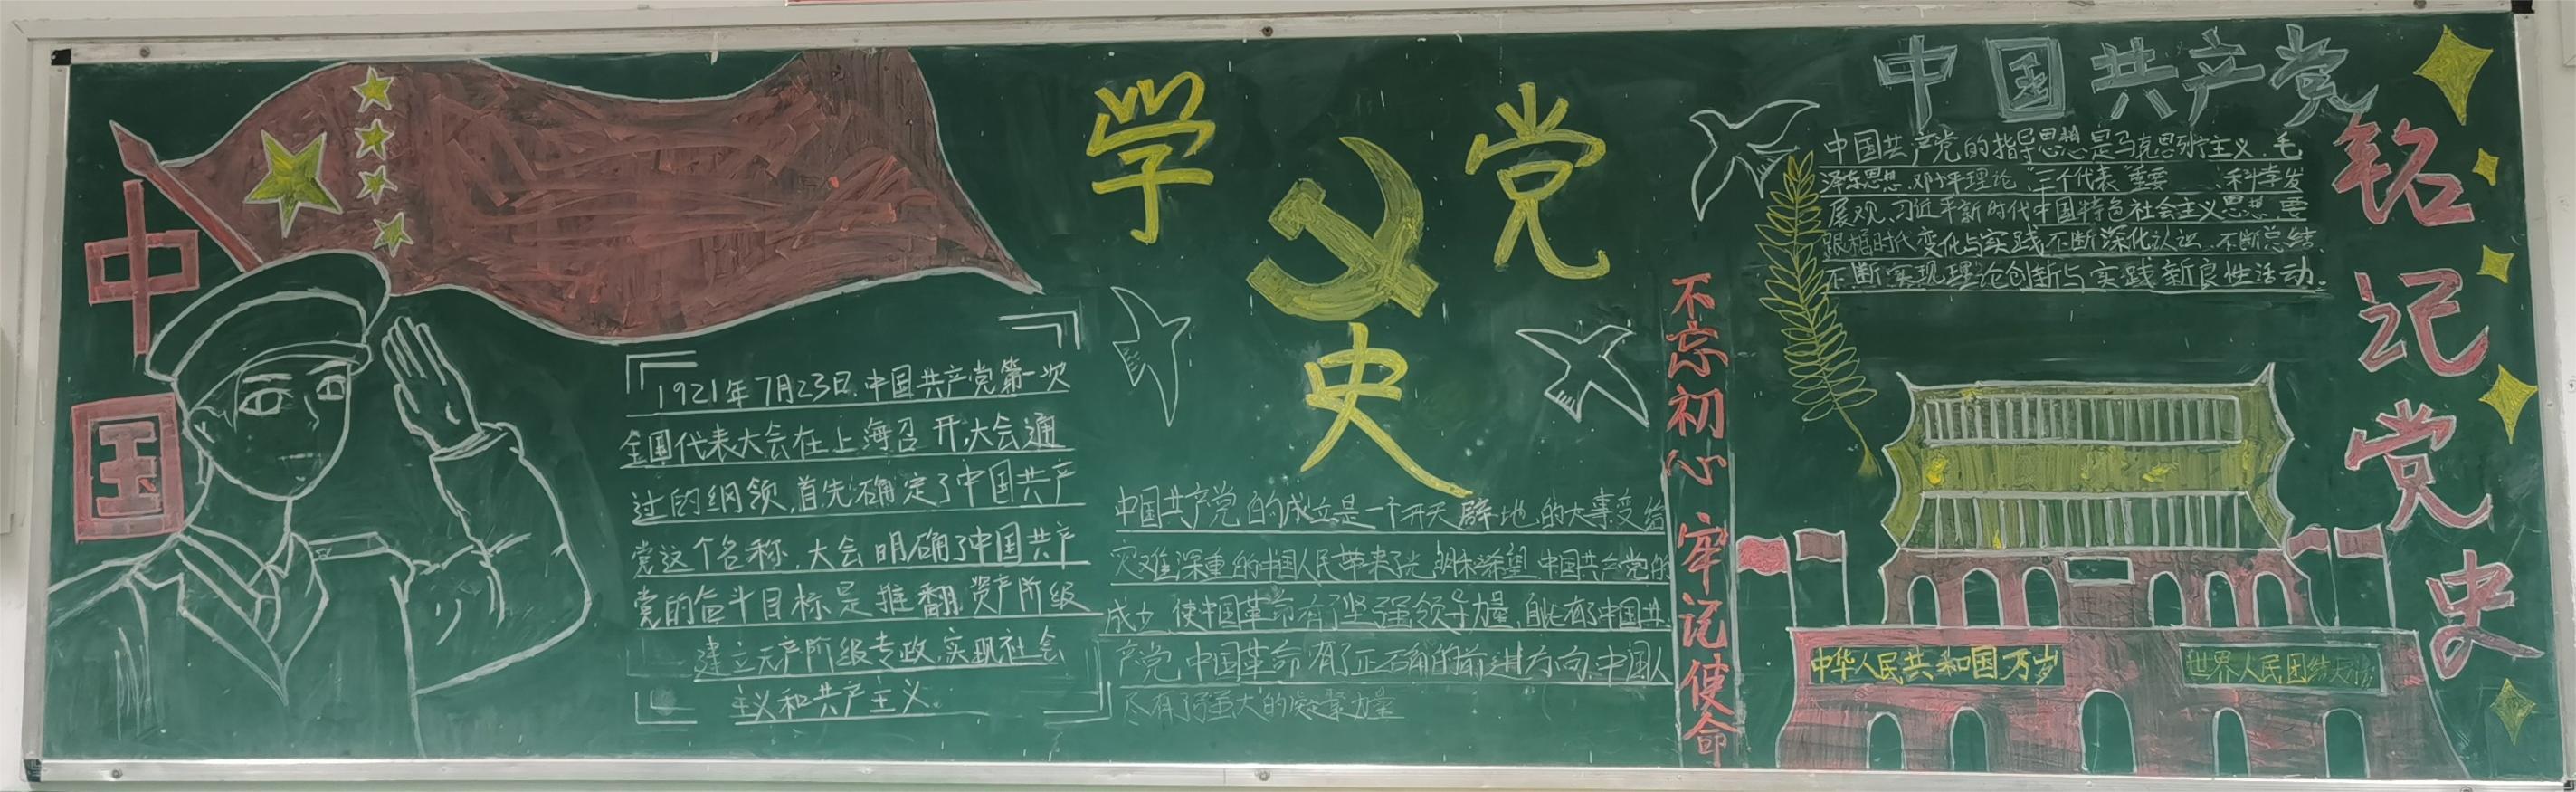 中国
1921年7月23日.中国共产党第一次
全国代表大会在上海召开,大会通
过的纲领,首先确定了中国共产
党这个名称,大会明确了中国共产
党的奋斗目标是推翻资产阶级
建立无产阶级专政,实现社会
主义和共产主义。
学党史
中国共产党的成立是一个开天辟地的大事变给
灾难深重的中国人民带来了光明和希望.中国共产党的
成立,使中国革命有了坚强领导力量,自此有了中国共
产党,中国革命有了正确的前进方向,中国人
有了强大的凝聚力量
不忘初心 牢记使命
中国共产党
中国共产党的指导思想是马克思列宁主义、毛
泽东思想、邓小平理论、"三个代表"重要 、科学发
展观、习近平新时代中国特色社会主义思想,要
跟随时代变化与实践不断深化认识,不断总结,
不断实现理论创新与实践新良性活动。
铭记党史
中华人民共和国万岁
世界人民团结